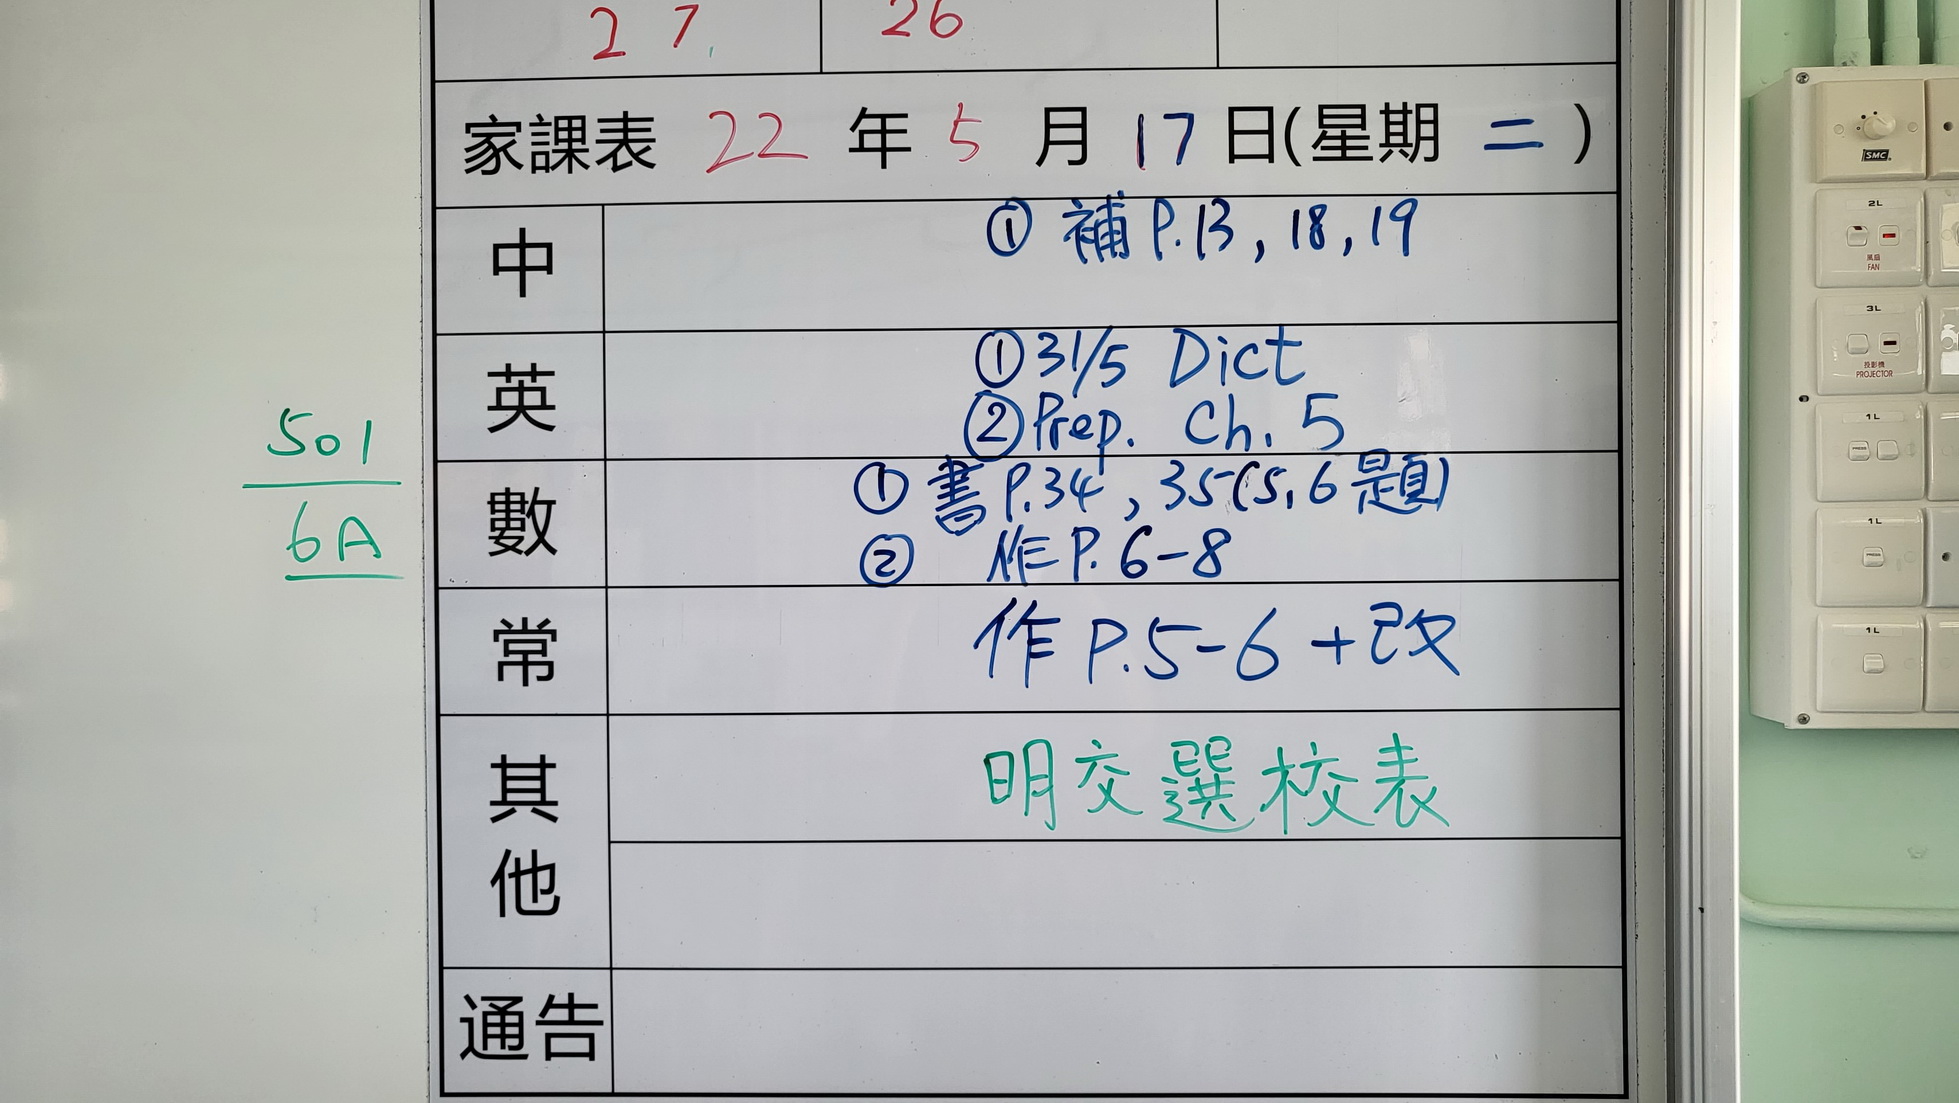 27 26
家課表 22 年 5 月 17 日(星期 二 )
中 ① 補 P.13, 18, 19
英 ① 31/5 Dict
② Prep. Ch. 5
數 ① 書 P.34, 35(5, 6題)
② 作 P. 6-8
常 作 P.5-6 +改
其他 明交選校表
通告
501
6A
SMC
2L
風扇
FAN
3L
投影機
PROJECTOR
1L
1L
1L